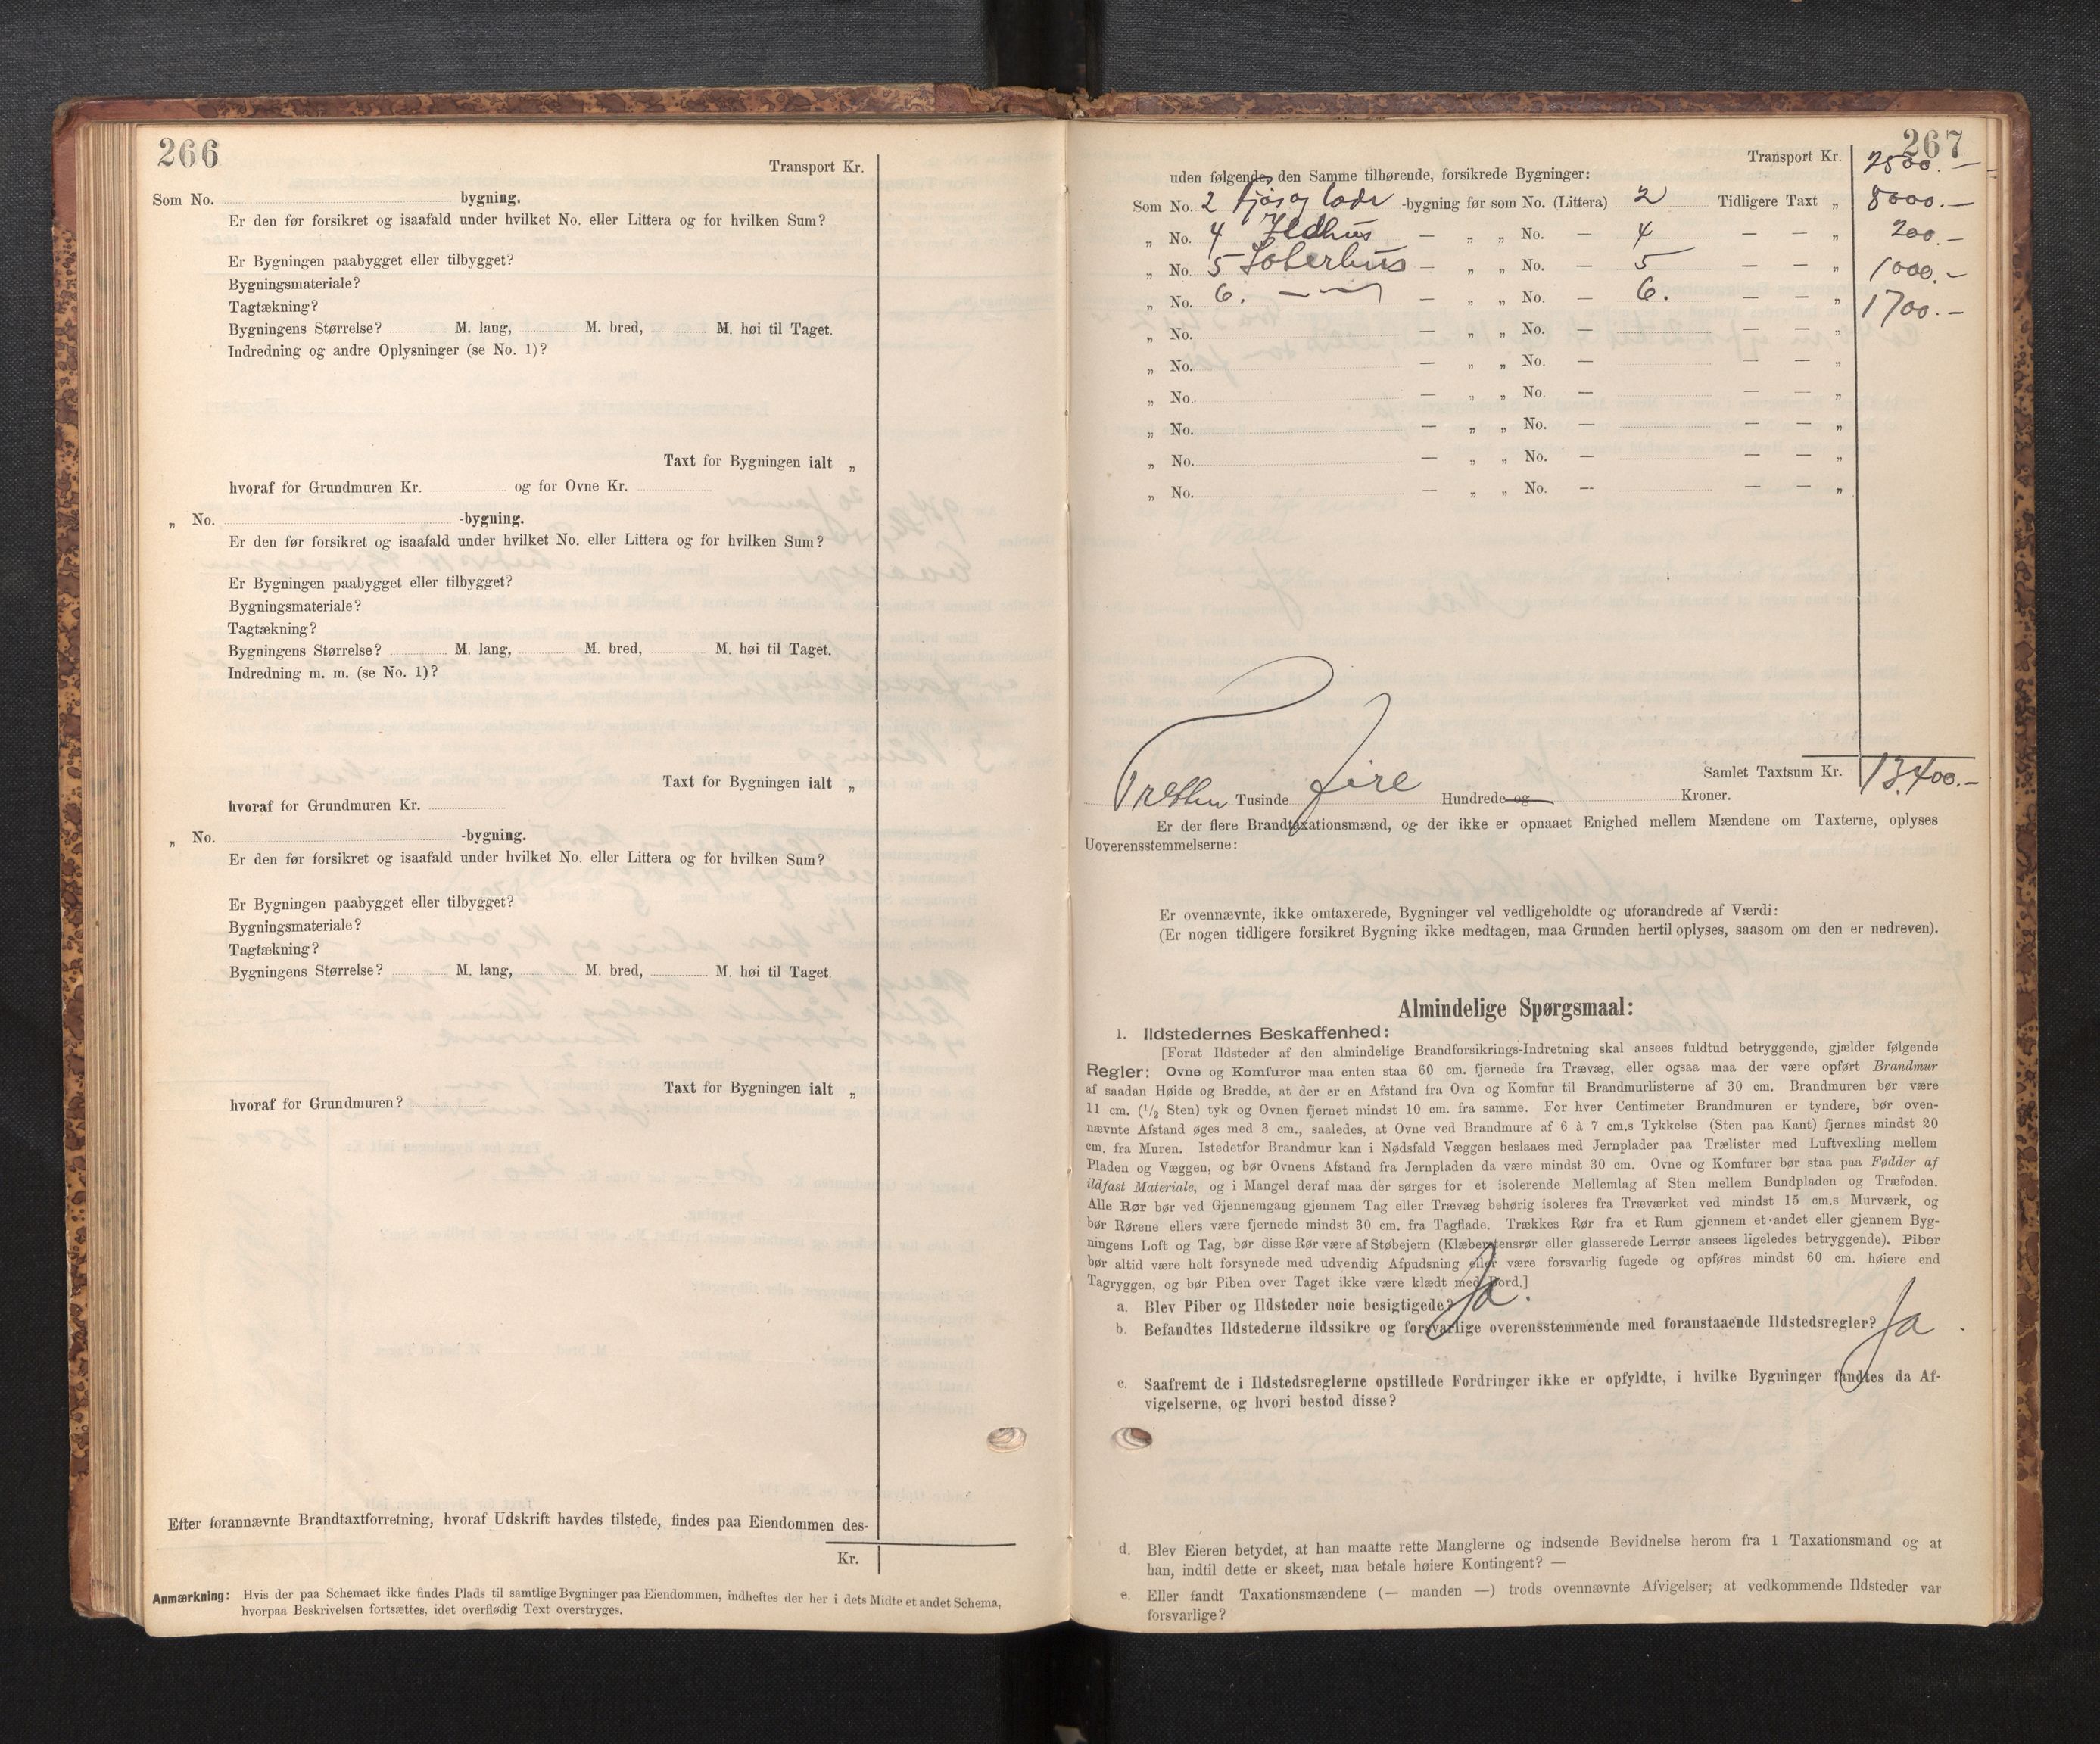 266
Transport Kr.
Som No. bygning.
Er den før forsikret og isaafald under hvilket No. eller Littera og for hvilken Sum?
Er Bygningen paabygget eller tilbygget?
Bygningsmateriale?
Tagtækning?
Bygningens Størrelse? M. lang, M. bred, M. høi til Taget.
Indredning og andre Oplysninger (se No. 1)?
Taxt for Bygningen ialt „
hvoraf for Grundmuren Kr. og for Ovne Kr.
„ No. -bygning.
Er den før forsikret og isaafald under hvilket No. eller Littera og for hvilken Sum?
Er Bygningen paabygget eller tilbygget?
Bygningsmateriale?
Tagtækning?
Bygningens Størrelse? M. lang, M. bred, M. høi til Taget.
Indredning m. m. (se No. 1)?
Taxt for Bygningen ialt „
hvoraf for Grundmuren Kr.
„ No. -bygning.
Er den før forsikret og isaafald under hvilket No. eller Littera og for hvilken Sum?
Er Bygningen paabygget eller tilbygget?
Bygningsmateriale?
Tagtækning?
Bygningens Størrelse? M. lang, M. bred, M. høi til Taget.
Taxt for Bygningen ialt „
hvoraf for Grundmuren?
Efter forannævnte Brandtaxtforretning, hvoraf Udskrift havdes tilstede, findes paa Eiendommen des-
Kr.
Anmærkning: Hvis der paa Schemaet ikke findes Plads til samtlige Bygninger paa Eiendommen, indheftes der her i dets Midte et andet Schema,
hvorpaa Beskrivelsen fortsættes, idet overflødig Text overstryges.
267
Transport Kr. 2500.—
uden følgende, den Samme tilhørende, forsikrede Bygninger:
Som No. 2 fjøs og lade -bygning før som No. (Littera) 2 Tidligere Taxt „ 8000.—
„ No. 4 Ildhus — „ „ No. — 4 — — „ 200.—
„ No. 5 Loberhus — „ „ No. — 5 — — „ 1000.—
„ No. 6. — „ — „ „ No. — 6. — — „ 1700.—
„ No. — „ „ No. — — — „
„ No. — „ „ No. — — — „
„ No. — „ „ No. — — — „
„ No. — „ „ No. — — — „
„ No. — „ „ No. — — — „
„ No. — „ „ No. — — — „
Samlet Taxtsum Kr. 13,400.—
Tretten Tusinde Fire Hundrede og Kroner.
Er der flere Brandtaxationsmænd, og der ikke er opnaaet Enighed mellem Mændene om Taxterne, oplyses
Uoverensstemmelserne:
Er ovennævnte, ikke omtaxerede, Bygninger vel vedligeholdte og uforandrede af Værdi:
(Er nogen tidligere forsikret Bygning ikke medtagen, maa Grunden hertil oplyses, saasom om den er nedreven).
Almindelige Spørgsmaal:
1. Ildstedernes Beskaffenhed:
[Forat Ildsteder af den almindelige Brandforsikrings-Indretning skal ansees fuldtud betryggende, gjælder følgende
Regler: Ovne og Komfurer maa enten staa 60 cm. fjernede fra Trævæg, eller ogsaa maa der være opført Brandmur
af saadan Høide og Bredde, at der er en Afstand fra Ovn og Komfur til Brandmurlisterne af 30 cm. Brandmuren bør være
11 cm. (1/2 Sten) tyk og Ovnen fjernet mindst 10 cm. fra samme. For hver Centimeter Brandmuren er tyndere, bør oven-
nævnte Afstand øges med 3 cm., saaledes, at Ovne ved Brandmure af 6 à 7 cm.s Tykkelse (Sten paa Kant) fjernes mindst 20
cm. fra Muren. Istedetfor Brandmur kan i Nødsfald Væggen beslaaes med Jernplader paa Trælister med Luftvexling mellem
Pladen og Væggen, og bør Ovnens Afstand fra Jernpladen da være mindst 30 cm. Ovne og Komfurer bør staa paa Fødder af
ildfast Materiale, og i Mangel deraf maa der sørges for et isolerende Mellemlag af Sten mellem Bundpladen og Træfoden.
Alle Rør bør ved Gjennemgang gjennem Tag eller Trævæg behørig isoleres fra Træværket ved mindst 15 cm.s Murværk, og
bør Rørene ellers være fjernede mindst 30 cm. fra Tagflade. Trækkes Rør fra et Rum gjennem et andet eller gjennem Byg-
ningens Loft og Tag, bør disse Rør være af Støbejern (Klæberstensrør eller glasserede Lerrør ansees ligeledes betryggende). Piber
bør altid være helt forsynede med udvendig Afpudsning eller være forsvarlig fugede og opføres mindst 60 cm. høiere end
Tagryggen, og bør Piben over Taget ikke være klædt med Bord.]
a. Blev Piber og Ildsteder nøie besigtigede? Ja.
b. Befandtes Ildstederne ildssikre og forsvarlige overensstemmende med foranstaaende Ildstedsregler? Ja.
c. Saafremt de i Ildstedsreglerne opstillede Fordringer ikke er opfyldte, i hvilke Bygninger fandtes da Af-
vigelserne, og hvori bestod disse?
d. Blev Eieren betydet, at han maatte rette Manglerne og indsende Bevidnelse herom fra 1 Taxationsmand og at
han, indtil dette er skeet, maa betale høiere Kontingent? —
e. Eller fandt Taxationsmændene (— manden —) trods ovennævnte Afvigelser; at vedkommende Ildsteder var
forsvarlige?